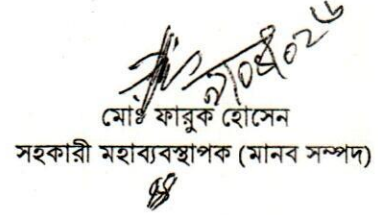 মোঃ ফারুক হোসেন
সহকারী মহাব্যবস্থাপক (মানব সম্পদ)